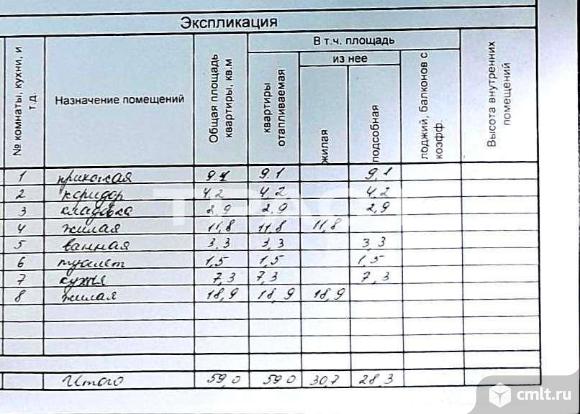 Экспликация
№ комнаты, кухни, и т.д.
Назначение помещений
Общая площадь квартиры, кв.м
В т.ч. площадь
квартиры отапливаемая
из нее
жилая
подсобная
лоджий, балконов с коэфф.
Высота внутренних помещений
1 прихожая 9,1 9,1 9,1
2 коридор 4,2 4,2 4,2
3 кладовка 2,9 2,9 2,9
4 жилая 11,8 11,8 11,8
5 ванная 3,3 3,3 3,3
6 туалет 1,5 1,5 1,5
7 кухня 7,3 7,3 7,3
8 жилая 18,9 18,9 18,9
Итого 59,0 59,0 30,7 28,3
cmlt.ru